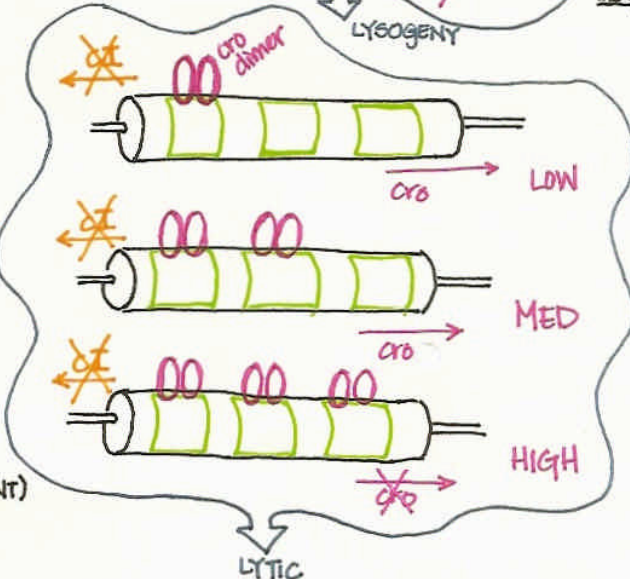 LYSOGENY
cI
cro
dimer
cro
LOW
cI
cro
MED
cI
cro
HIGH
NT)
LYTIC